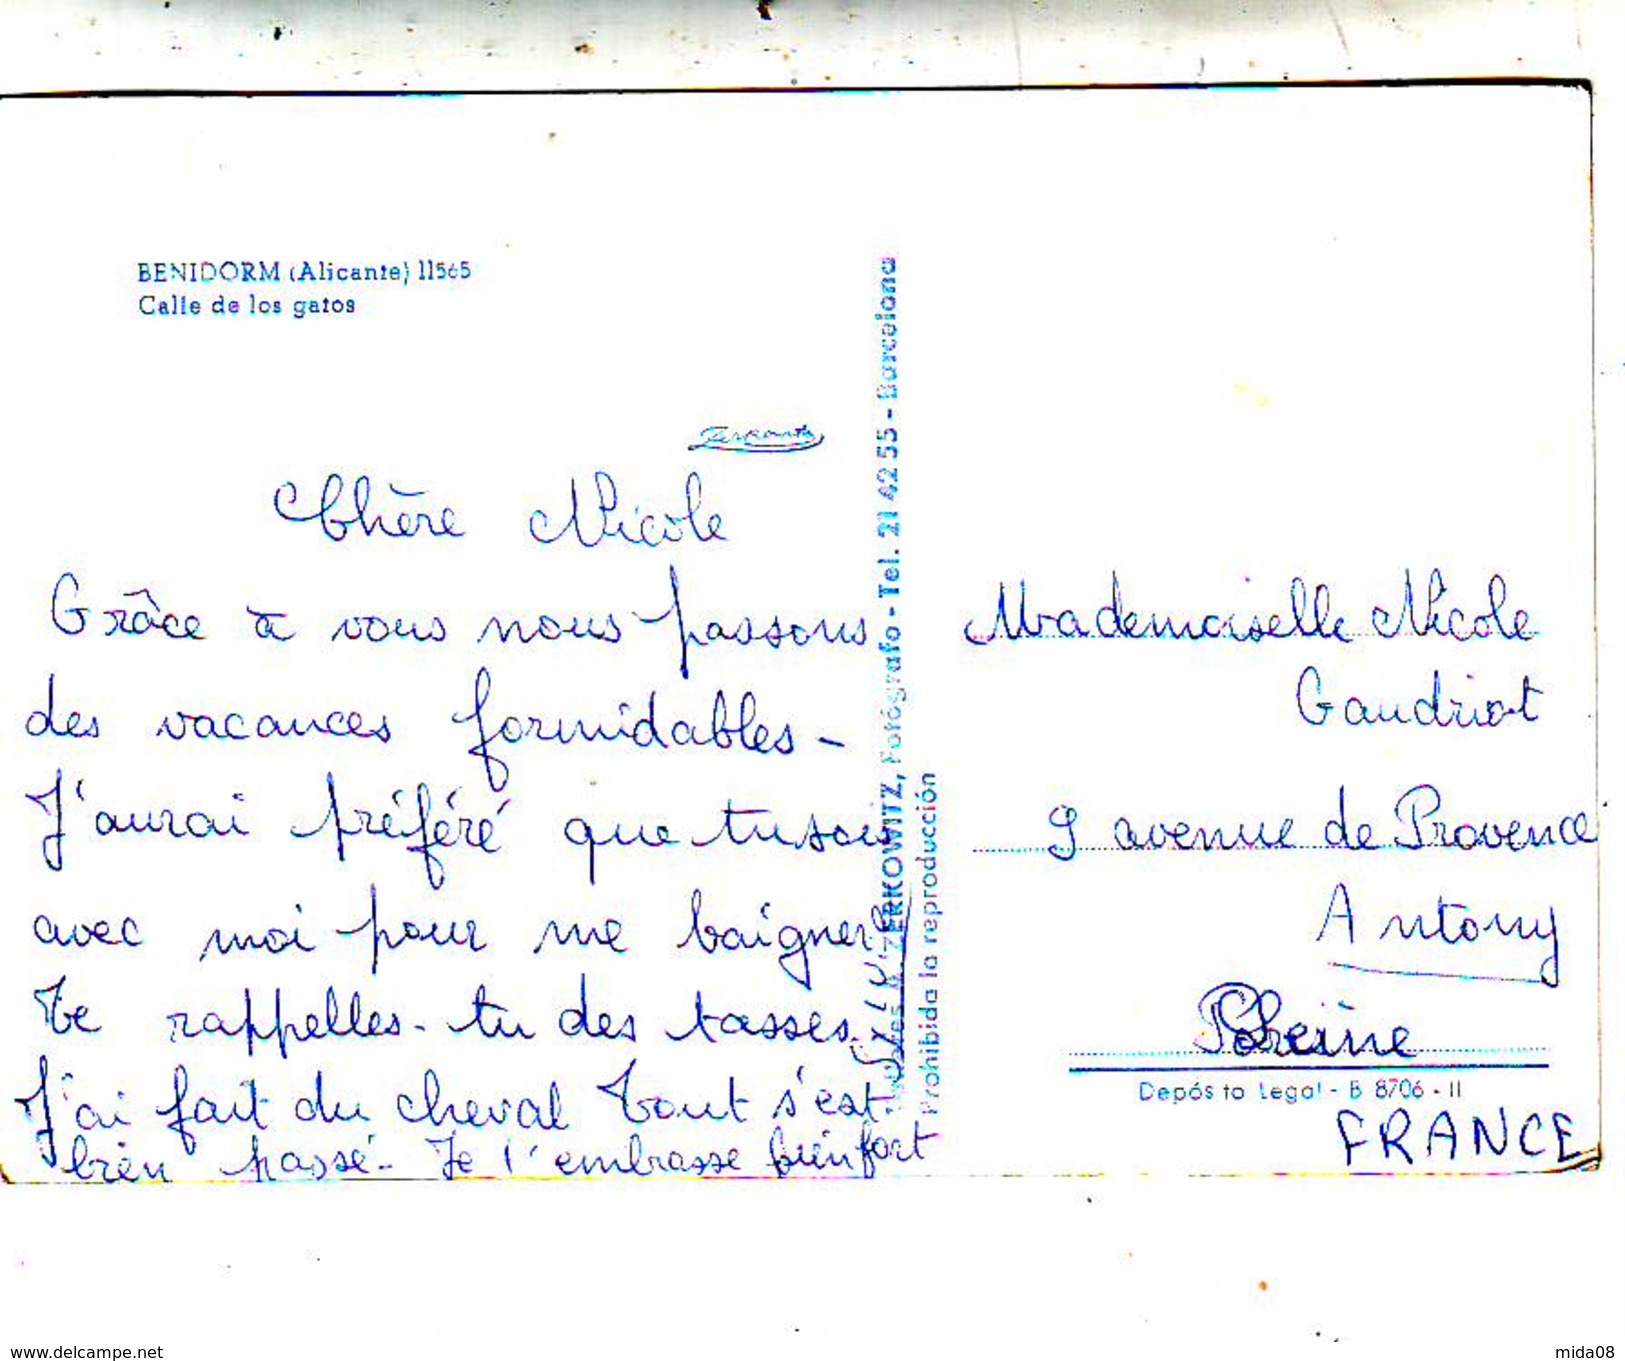 BENIDORM (Alicante) 11565
Calle de los gatos
Zerkowitz
Chère Nicole
Grâce à vous nous passons
des vacances formidables -
J'aurai préféré que tu sois
avec moi pour me baigner
Te rappelles-tu des tasses
J'ai fait du cheval Tout s'est
bien passé - Je t'embrasse bien fort
Sylvie
ZERKOWITZ, Fotógrafo - Tel. 21 42 55 - Barcelona
Prohibida la reproducción
Mademoiselle Nicole
Gaudriot
9 avenue de Provence
Antony
Seine
Depósito Legal - B 8706 - II
FRANCE
www.delcampe.net
mida08